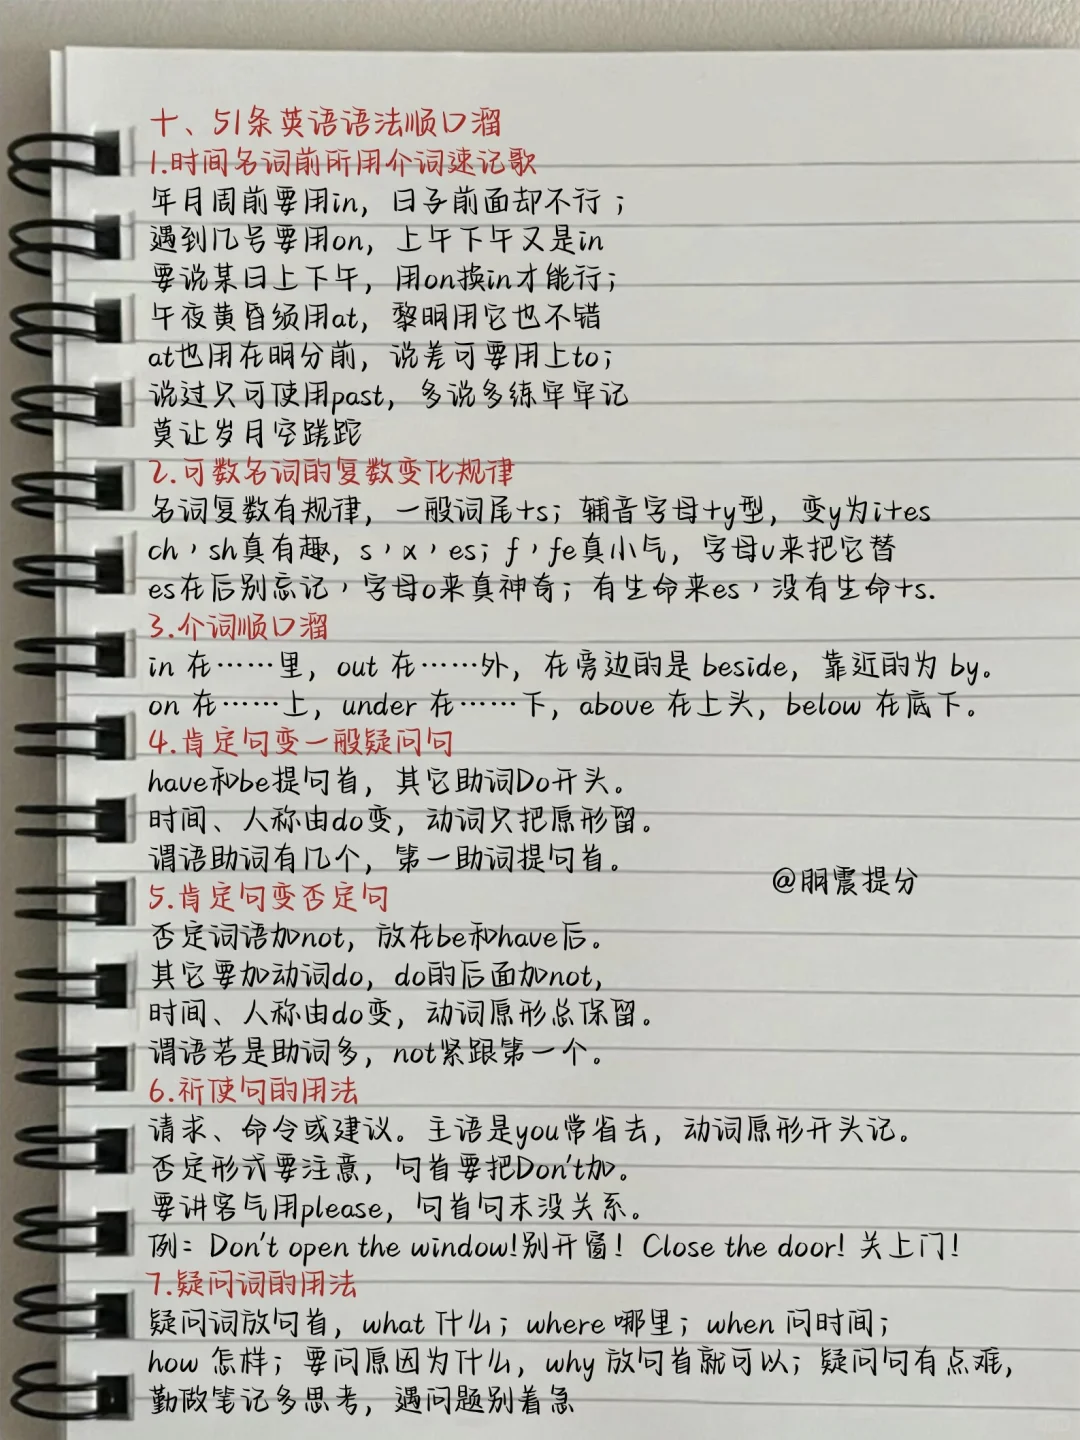 十、51条英语语法顺口溜
1.时间名词前所用介词速记歌
年月周前要用in，日子前面却不行；
遇到几号要用on，上午下午又是in
要说某日上下午，用on换in才能行；
午夜黄昏须用at，黎明用它也不错
at也用在明分前，说差可要用上to；
说过只可使用past，多说多练牢牢记
莫让岁月空蹉跎
2.可数名词的复数变化规律
名词复数有规律，一般词尾+s；辅音字母+y型，变y为i+es
ch，sh真有趣，s，x，es；f，fe真小气，字母v来把它替
es在后别忘记，字母o来真神奇；有生命来es，没有生命+s.
3.介词顺口溜
in 在……里，out 在……外，在旁边的是 beside，靠近的为 by。
on 在……上，under 在……下，above 在上头，below 在底下。
4.肯定句变一般疑问句
have和be提句首，其它助词Do开头。
时间、人称由do变，动词只把原形留。
谓语助词有几个，第一助词提句首。
@朋震提分
5.肯定句变否定句
否定词语加not，放在be和have后。
其它要加动词do，do的后面加not，
时间、人称由do变，动词原形总保留。
谓语若是助词多，not紧跟第一个。
6.祈使句的用法
请求、命令或建议。主语是you常省去，动词原形开头记。
否定形式要注意，句首要把Don't加。
要讲客气用please，句首句末没关系。
例：Don't open the window!别开窗！Close the door! 关上门！
7.疑问词的用法
疑问词放句首，what 什么；where 哪里；when 问时间；
how 怎样；要问原因为什么，why 放句首就可以；疑问句有点难，
勤做笔记多思考，遇问题别着急